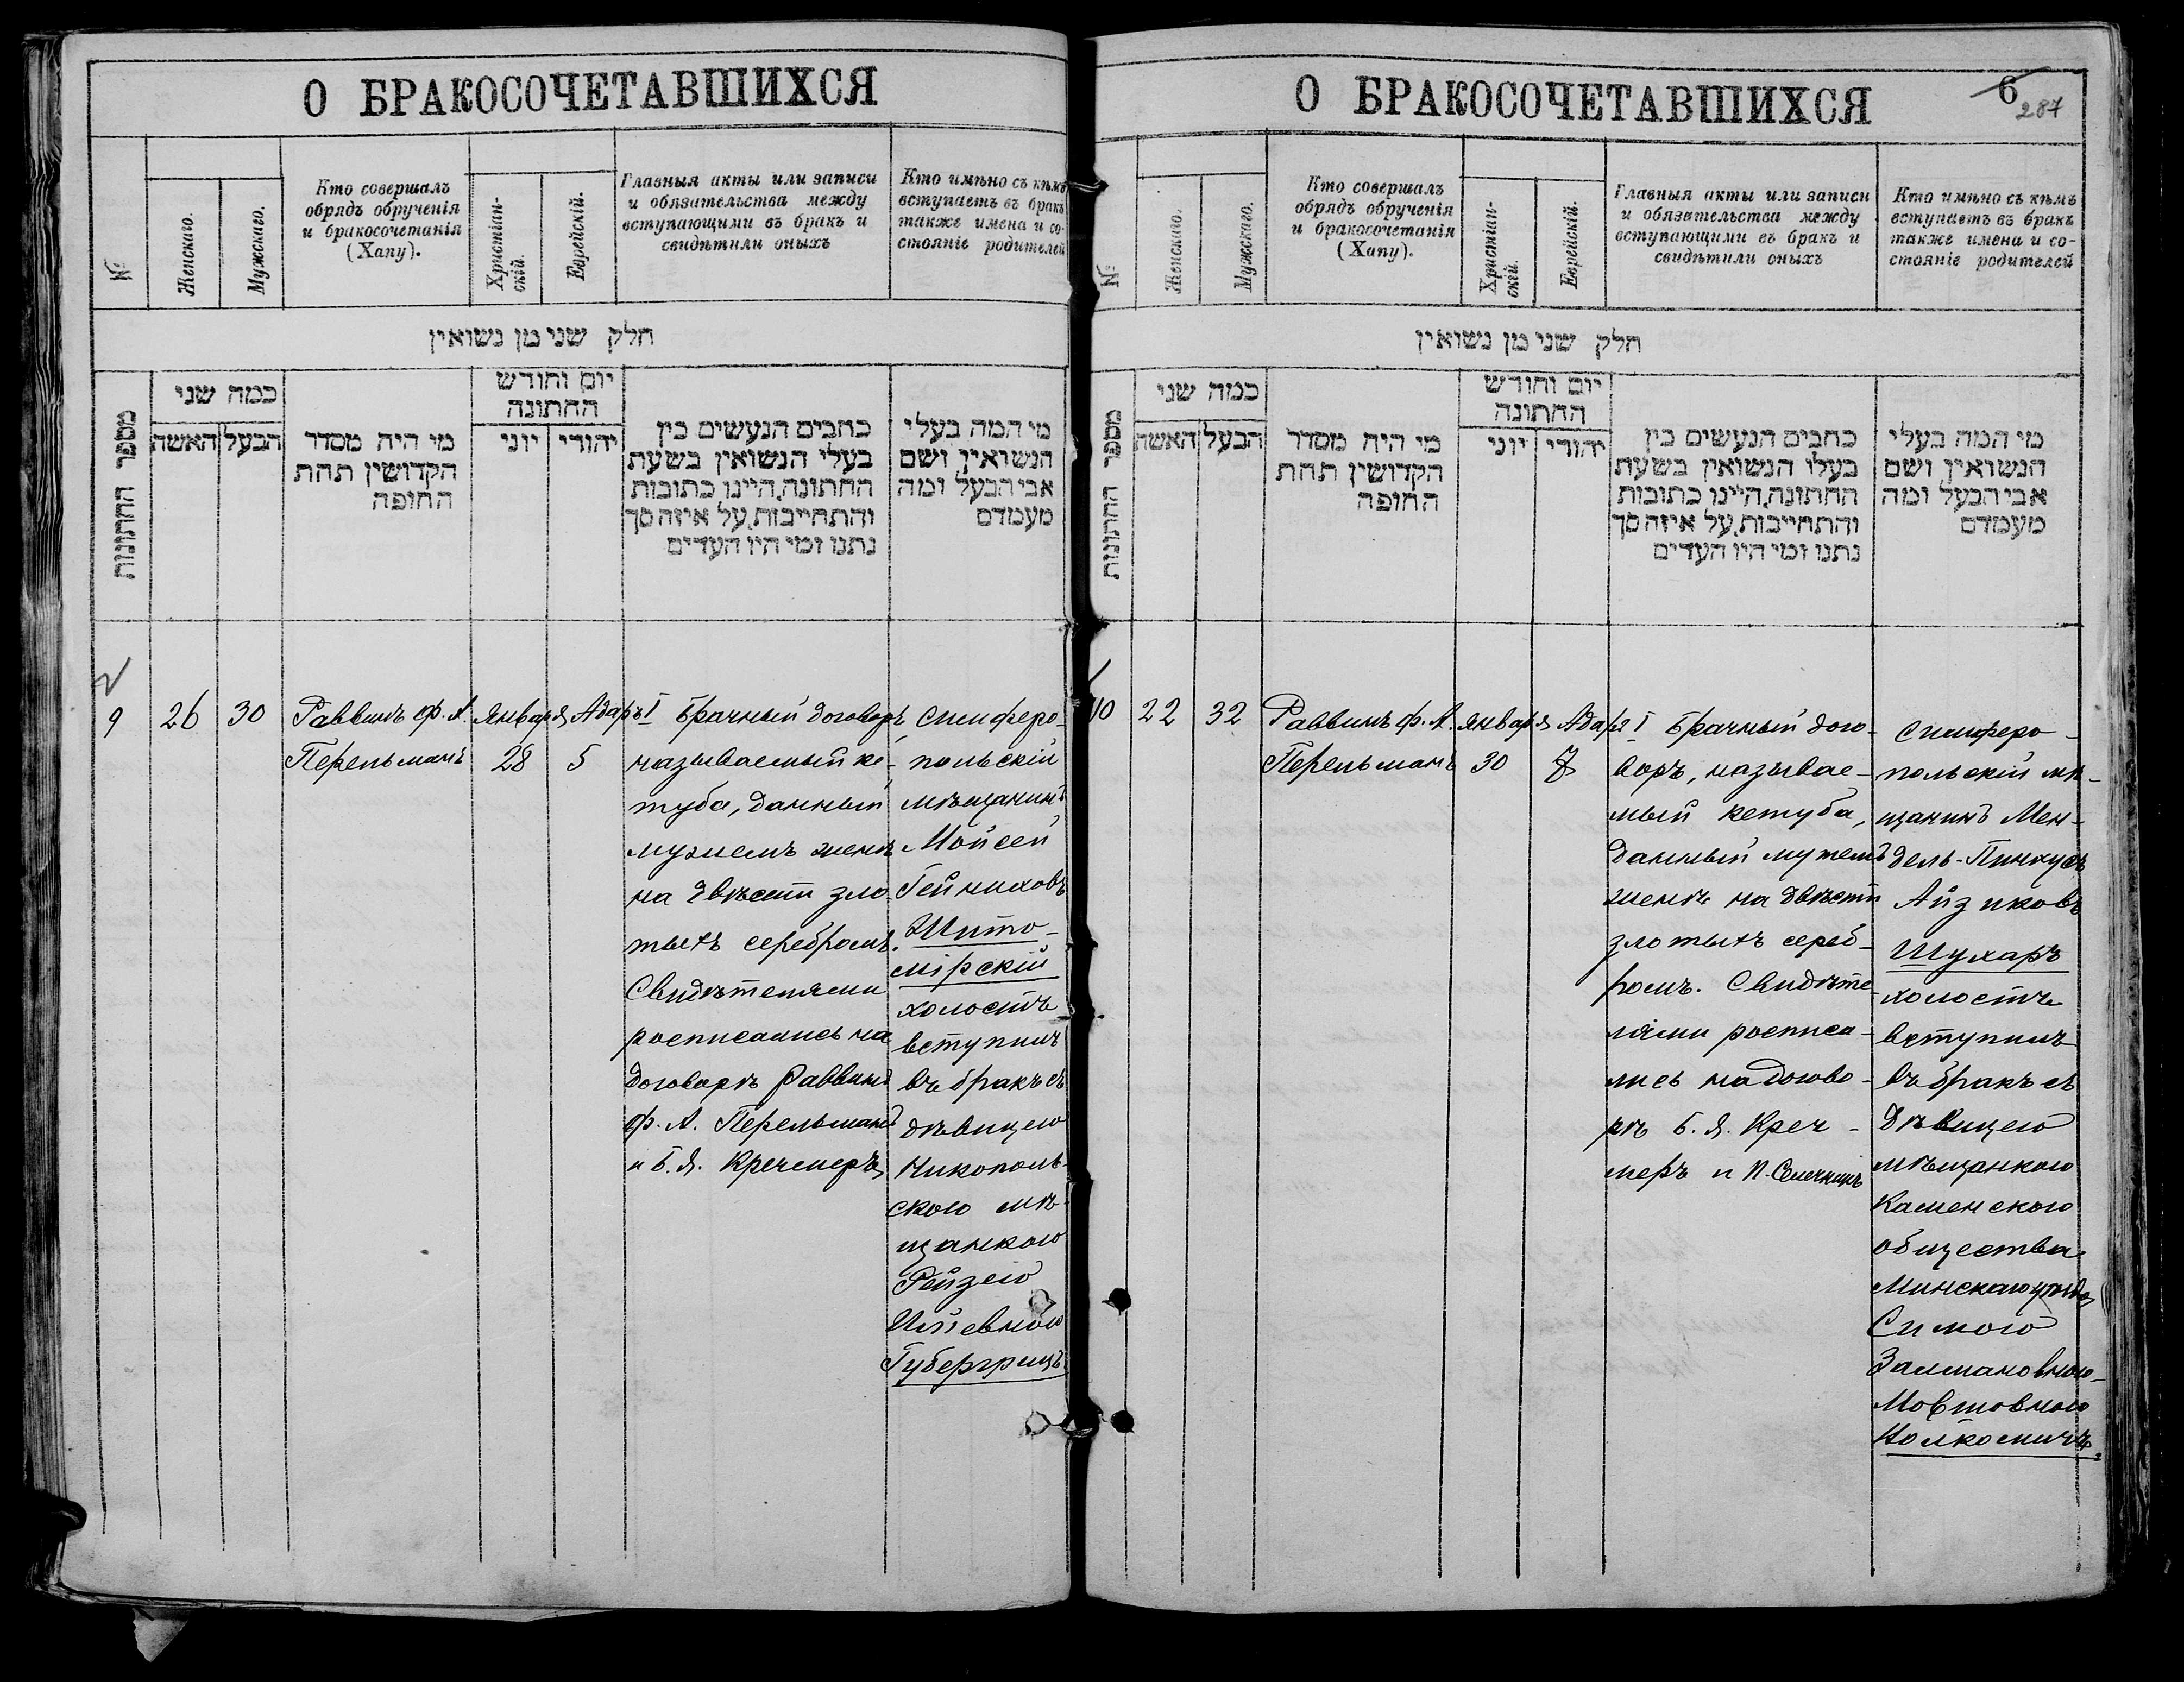 О БРАКОСОЧЕТАВШИХСЯ
№
Женскаго.
Мужскаго.
Кто совершалъ
обрядъ обрученія
и бракосочетанія
(Хапу).
Христіан-
скій.
Еврейскій.
Главныя акты или записи
и обязательства между
вступающими въ бракъ и
свидѣтили оныхъ
Кто имѣно съ кѣмъ
вступаетъ въ бракъ
также имена и со-
стояніе родителей
חלק שני מן נשואין
מספר החתונות
כמה שני
האשה
הבעל
מי היה מסדר
הקדושין תחת
החופה
יום וחודש
החתונה
יוני
יהודי
כתבים הנעשים בין
בעלי הנשואין בשעת
החתונה, היינו כתובות
והתחייבות, על איזה סך
נתנו ומי היו העדים
מי המה בעלי
הנשואין ושם
אבי הבעל ומה
מעמדם
9
26
30
Раввинъ Ф. А.
Перельманъ
Января
28
Адаръ I
5
Брачный договоръ,
называемый ке-
туба, данный
мужемъ женѣ
на двѣсти зло-
тыхъ серебромъ.
Свидѣтелями
росписались на
договорѣ Раввинъ
Ф. А. Перельманъ
и Б. Я. Кречмеръ
Симферо-
польскій
мѣщанинъ
Мойсей
Гейниховъ
Жито-
мірскій
холостъ
вступилъ
въ бракъ съ
дѣвицею
Никополь-
скою мѣ-
щанкою
Рейзею
Илiевною
Губергрицъ
О БРАКОСОЧЕТАВШИХСЯ
6
287
№
Женскаго.
Мужскаго.
Кто совершалъ
обрядъ обрученія
и бракосочетанія
(Хапу).
Христіан-
скій.
Еврейскій.
Главныя акты или записи
и обязательства между
вступающими въ бракъ и
свидѣтили оныхъ
Кто имѣно съ кѣмъ
вступаетъ въ бракъ
также имена и со-
стояніе родителей
חלק שני מן נשואין
מספר החתונות
כמה שני
האשה
הבעל
מי היה מסדר
הקדושין תחת
החופה
יום וחודש
החתונה
יוני
יהודי
כתבים הנעשים בין
בעלי הנשואין בשעת
החתונה, היינו כתובות
והתחייבות, על איזה סך
נתנו ומי היו העדים
מי המה בעלי
הנשואין ושם
אבי הבעל ומה
מעמדם
10
22
32
Раввинъ Ф. А.
Перельманъ
Января
30
Адаръ I
7
Брачный дого-
воръ, называе-
мый кетуба,
данный мужемъ
женѣ на двѣсти
злотыхъ сереб-
ромъ. Свидѣте-
лями росписа-
лись на догово-
рѣ Б. Я. Креч-
меръ и П.
Симферо-
польскій мѣ-
щанинъ Мен-
дель-Пинхусъ
Айзиковъ
Шухаръ
холостъ
вступилъ
въ бракъ съ
дѣвицею
мѣщанкою
Каменскаго
общества
Минскаго уѣзда
Симою
Залмановною-
Мовшовною